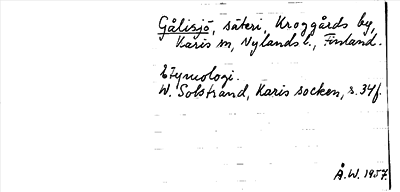 Gålisjö, säteri, Kroggårds by,
Karis sn, Nylands l., Finland.
Etymologi.
W. Solstrand, Karis socken, s. 34f.
Å.W. 1957.